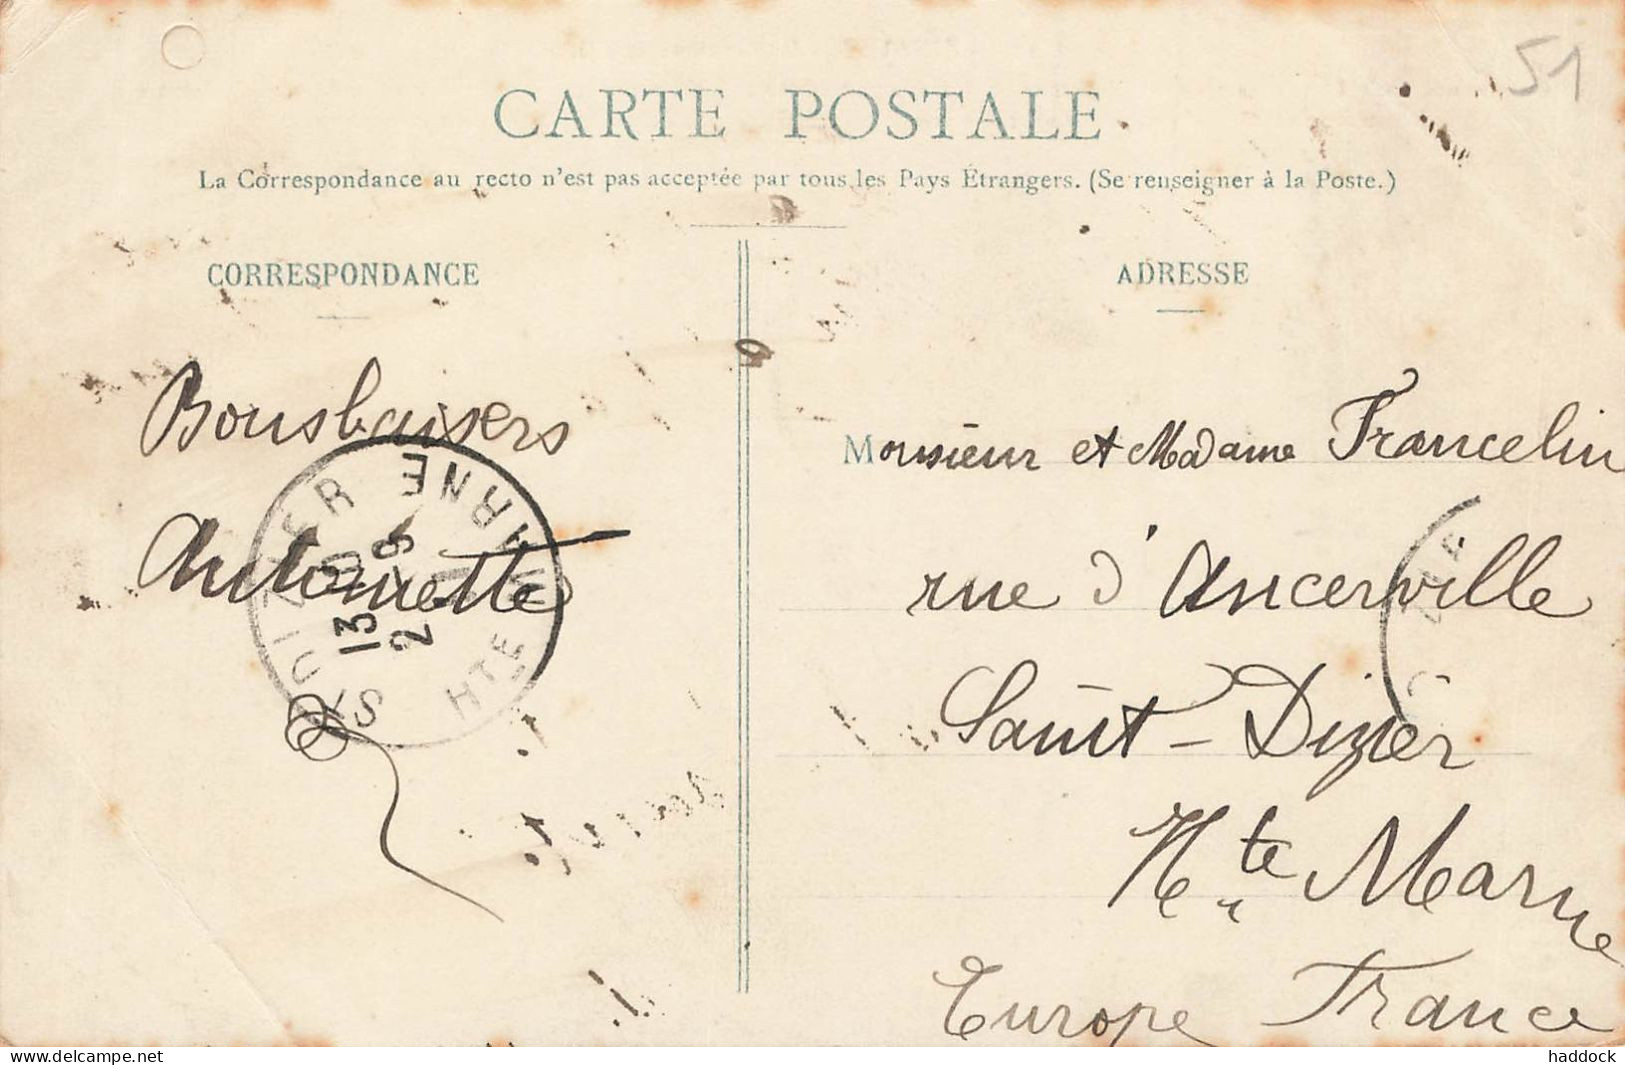 51
CARTE POSTALE
La Correspondance au recto n'est pas acceptée par tous les Pays Étrangers. (Se renseigner à la Poste.)
CORRESPONDANCE
Bonsbaisers
Antoinette
ST DIZIER HTE MARNE
13
2 9
ADRESSE
Monsieur et Madame Francelin
rue d'Ancerville
Saint-Dizier
Hte Marne
Europe France
www.delcampe.net
haddock